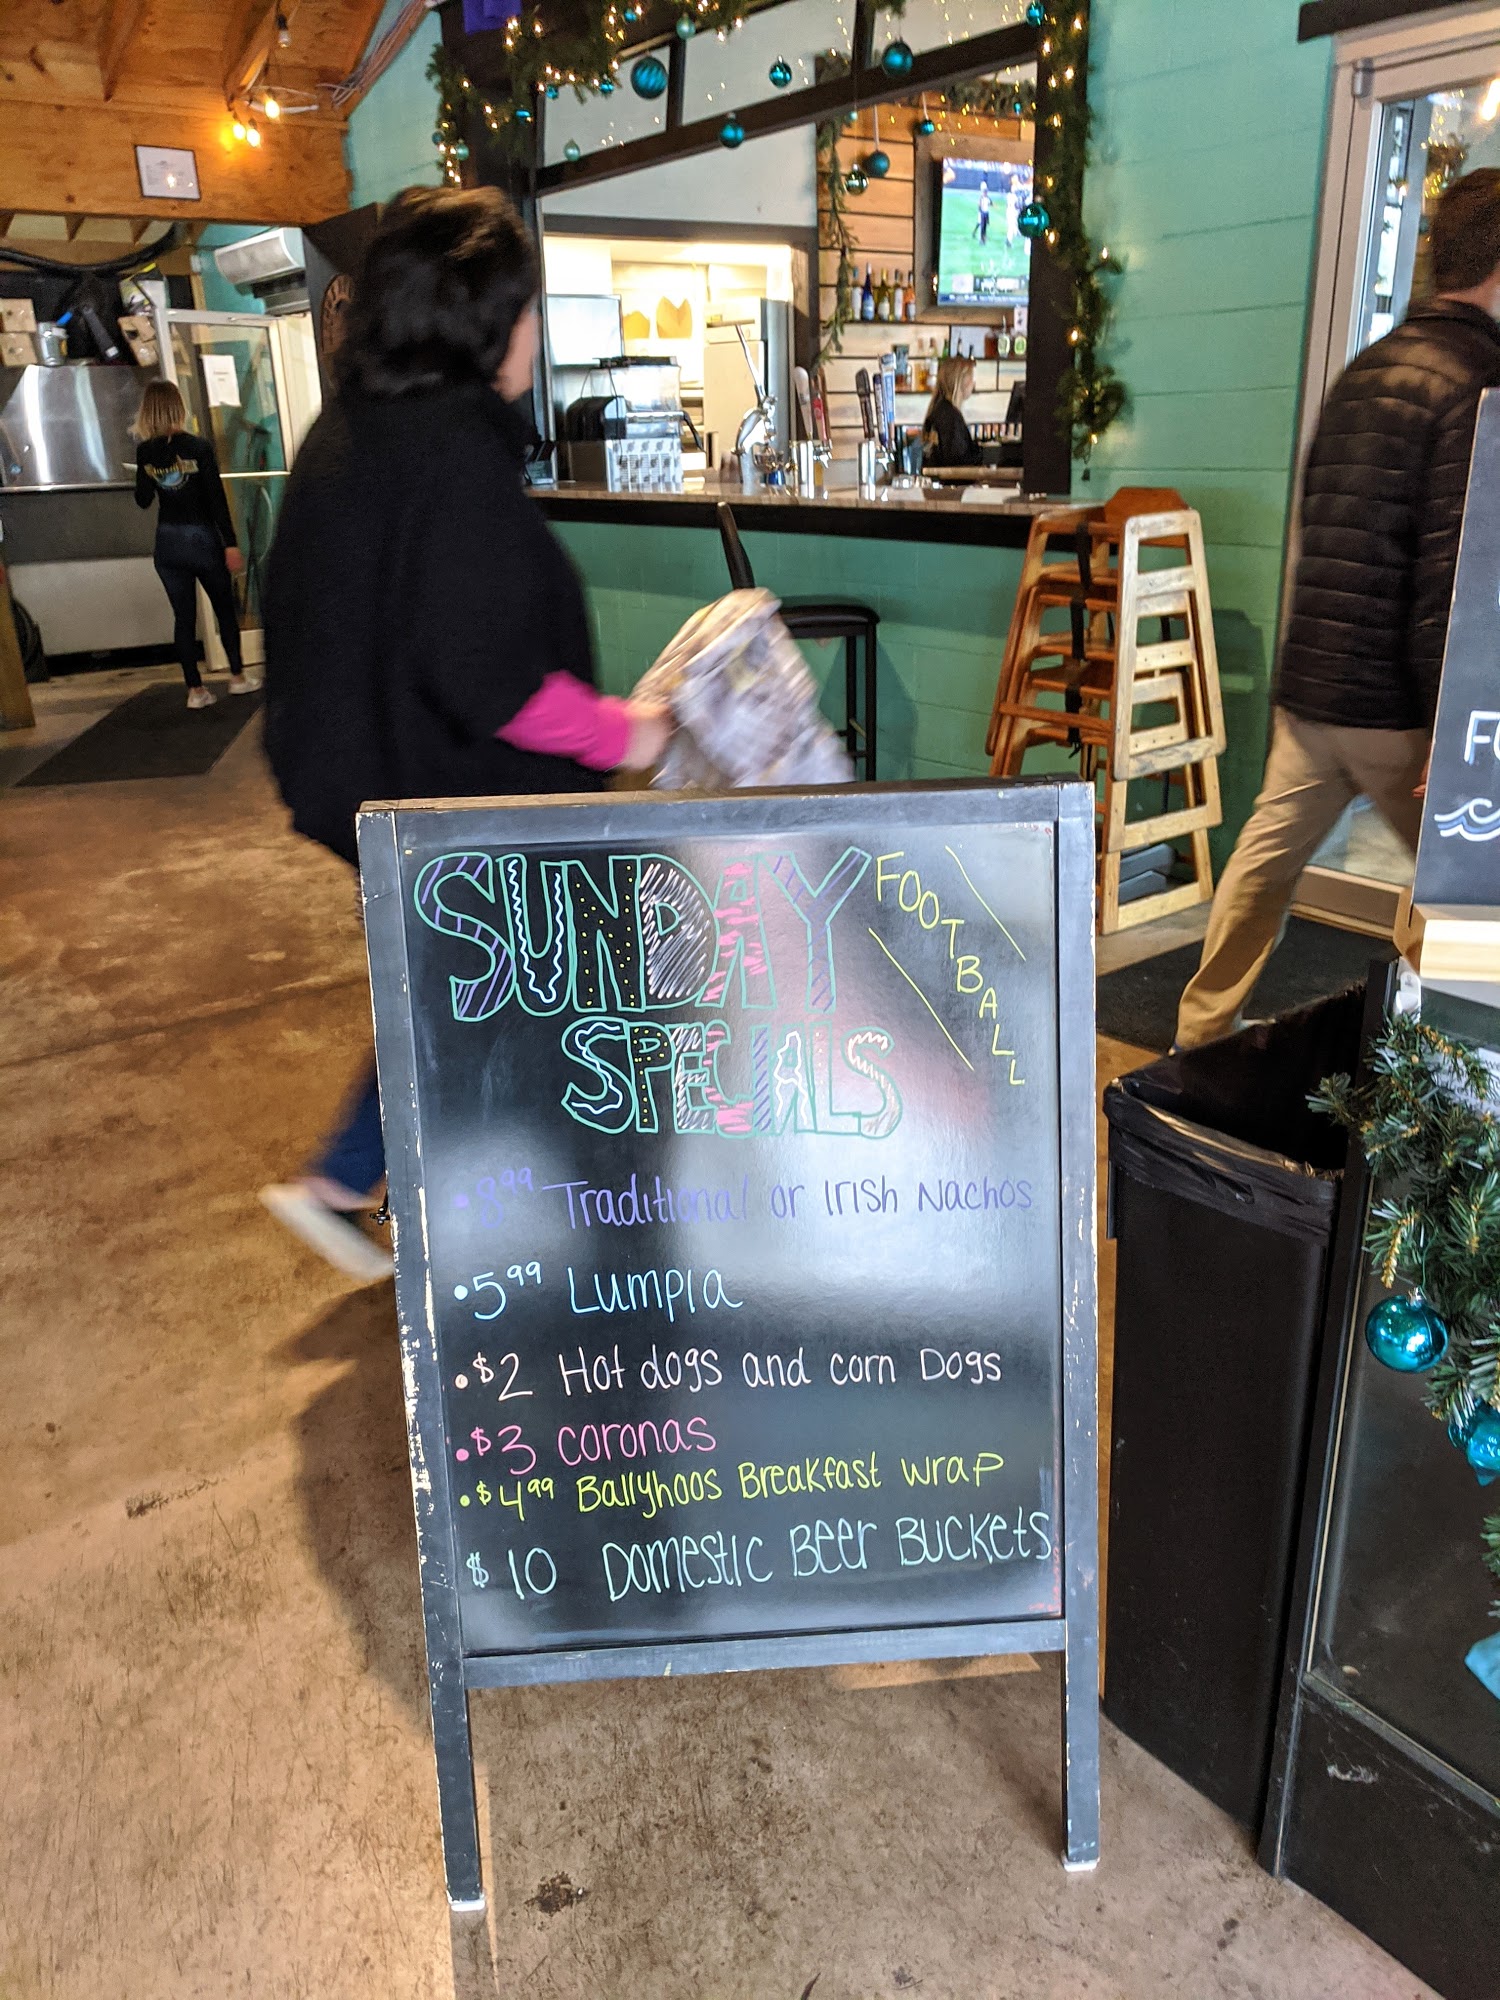 SUNDAY
SPECIALS
FOOTBALL
• 8⁹⁹ Traditional or Irish Nachos
• 5⁹⁹ Lumpia
• $2 Hot dogs and corn Dogs
• $3 coronas
• $4⁹⁹ Ballyhoos Breakfast wrap
$10 Domestic Beer Buckets